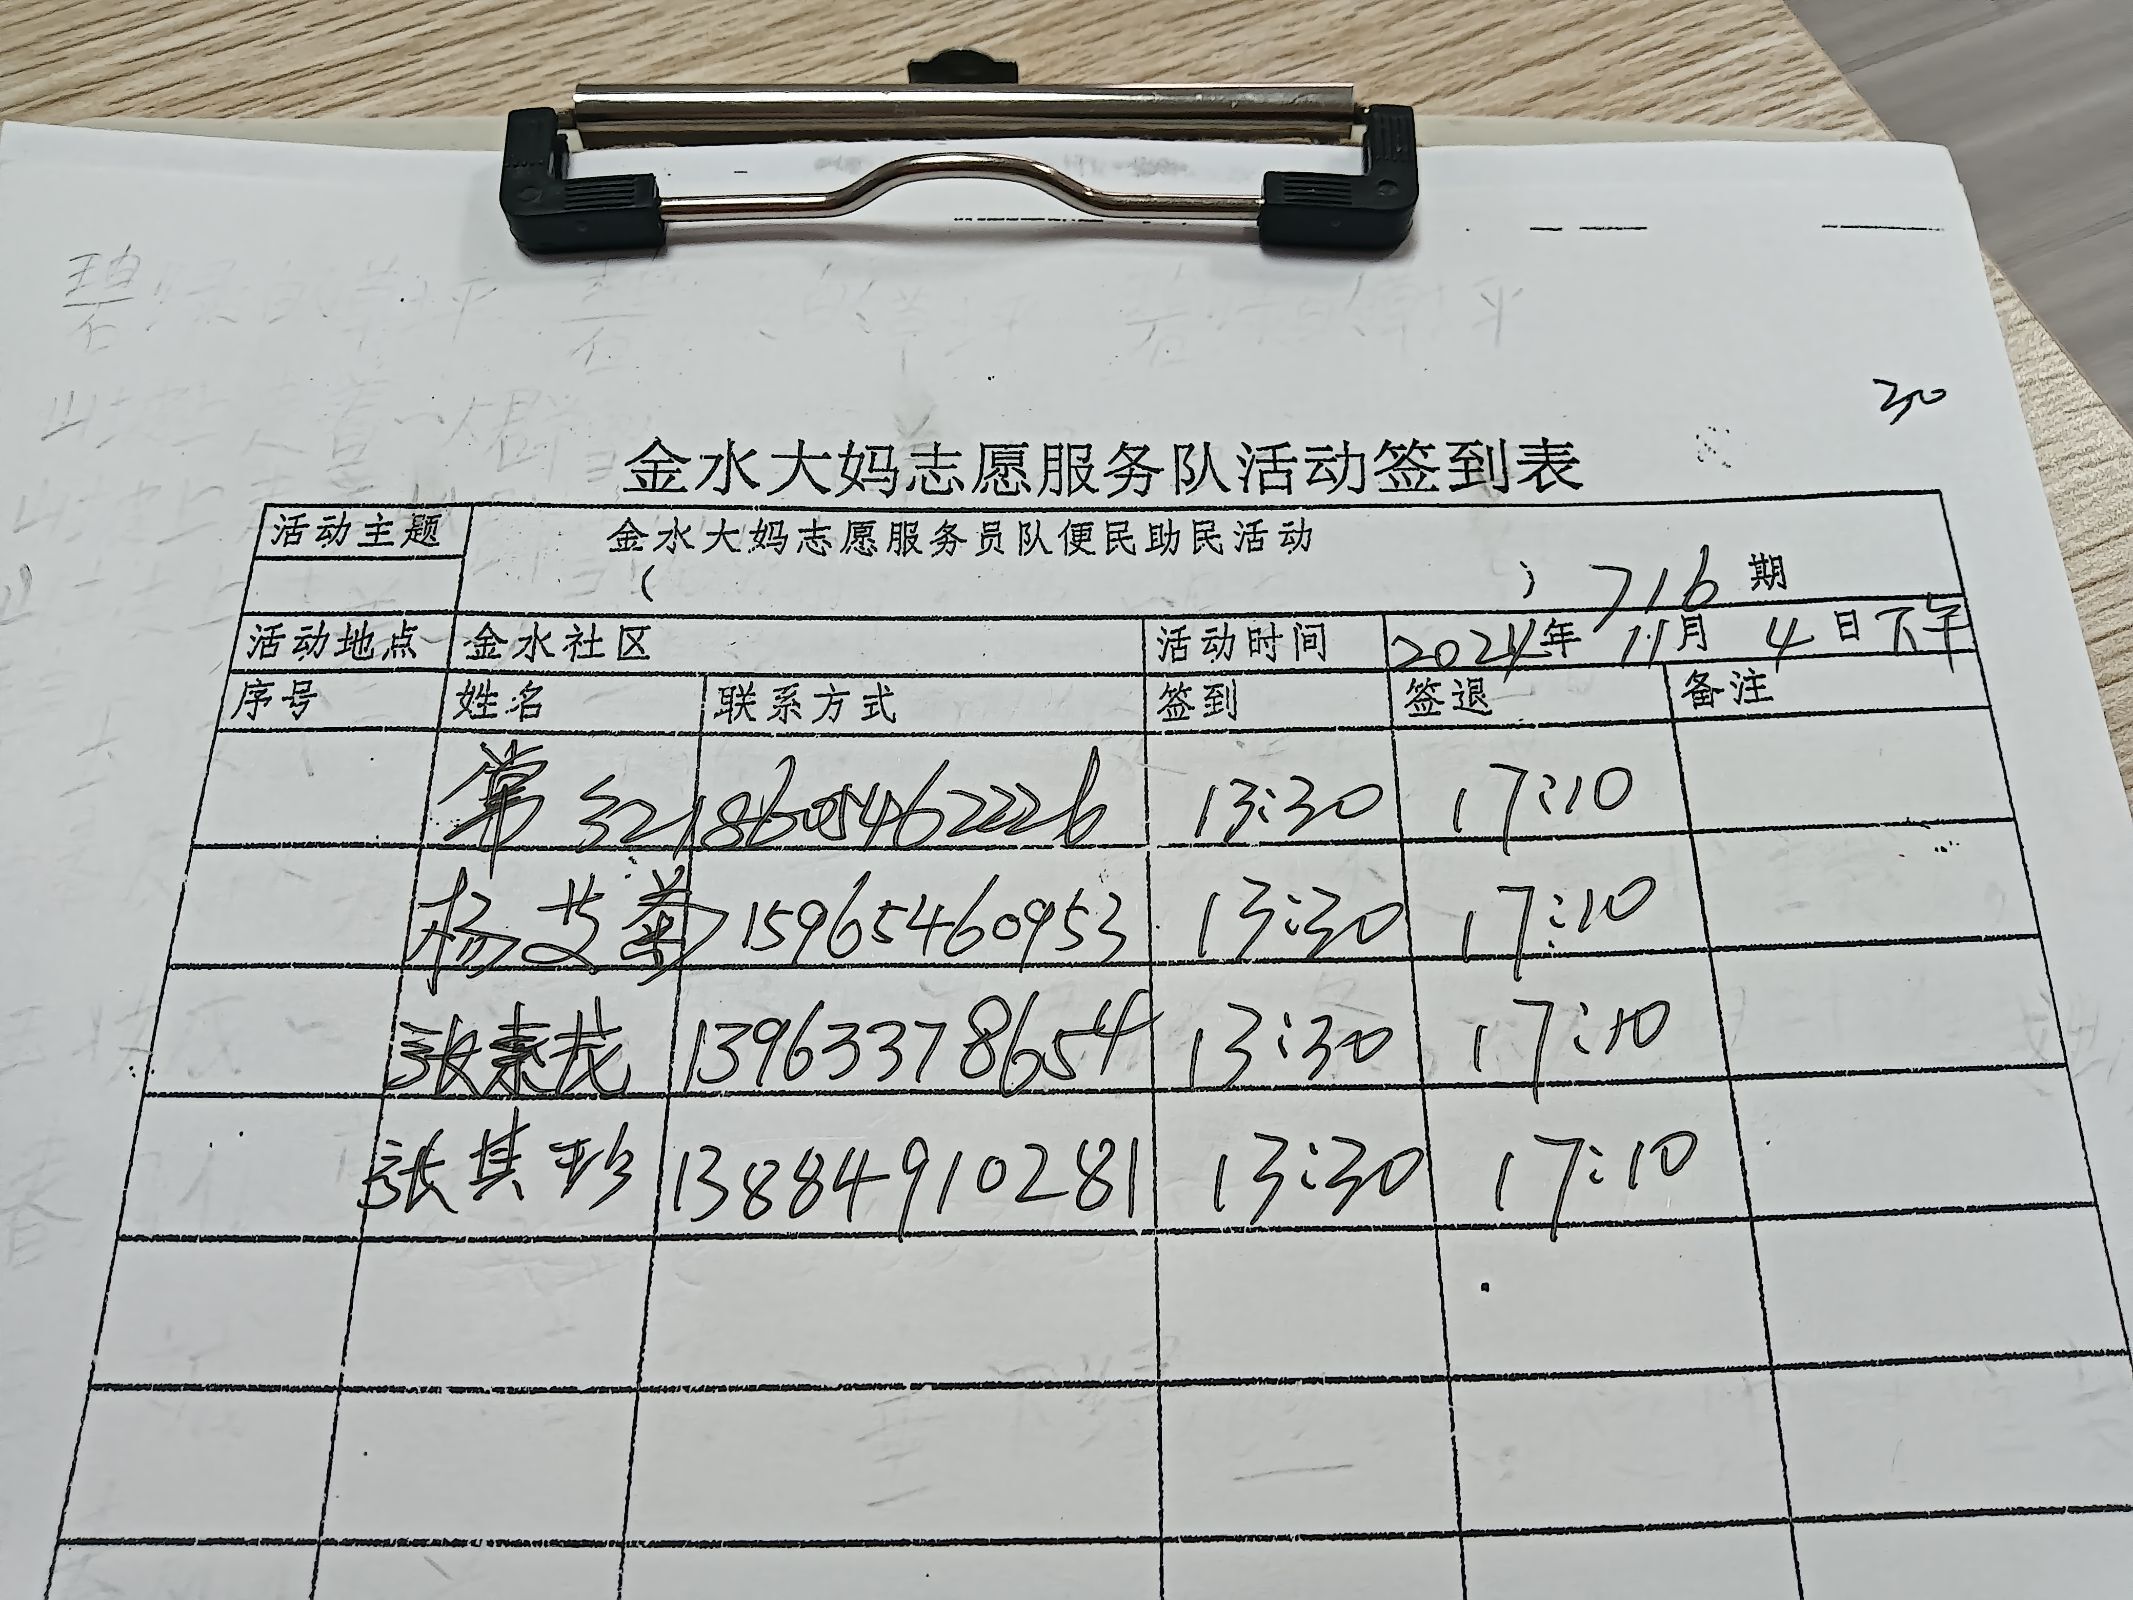 30
金水大妈志愿服务队活动签到表
活动主题 金水大妈志愿服务员队便民助民活动
( ) 716 期
活动地点 金水社区 活动时间 2024年 11月 4日下午
序号 姓名 联系方式 签到 签退 备注
常 18605462226 13:30 17:10
杨艾菊 15965460953 13:30 17:10
张素茂 13963378654 13:30 17:10
张其珍 13884910281 13:30 17:10